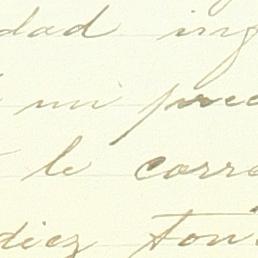 dad ing
mi prec
le corre
diez ton